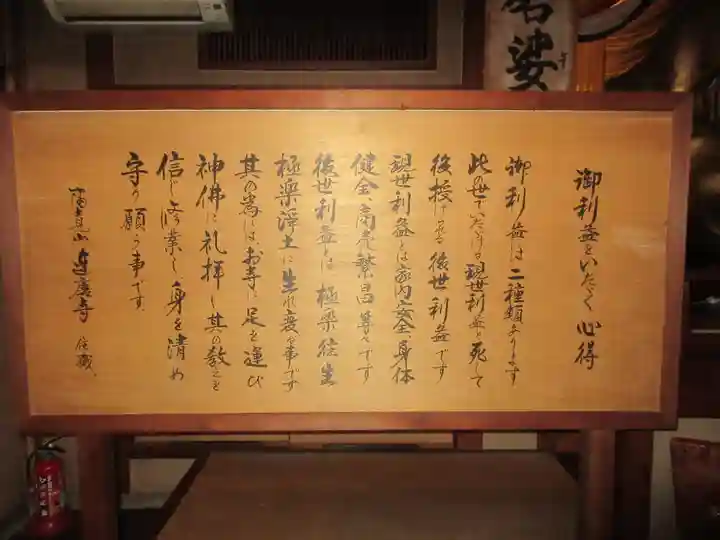 御利益をいただく心得
御利益は二種類あります
此の世でいただける現世利益と死して
後授ける後世利益です
現世利益とは家内安全、身体
健全、商売繁昌等々です
後世利益とは極楽往生
極楽浄土に生れ変る事です
其の為には、お寺に足を運び
神佛に礼拝し其の教えを
信じ修業し、身を清め
守り願う事です。
山 寺 住職
娑